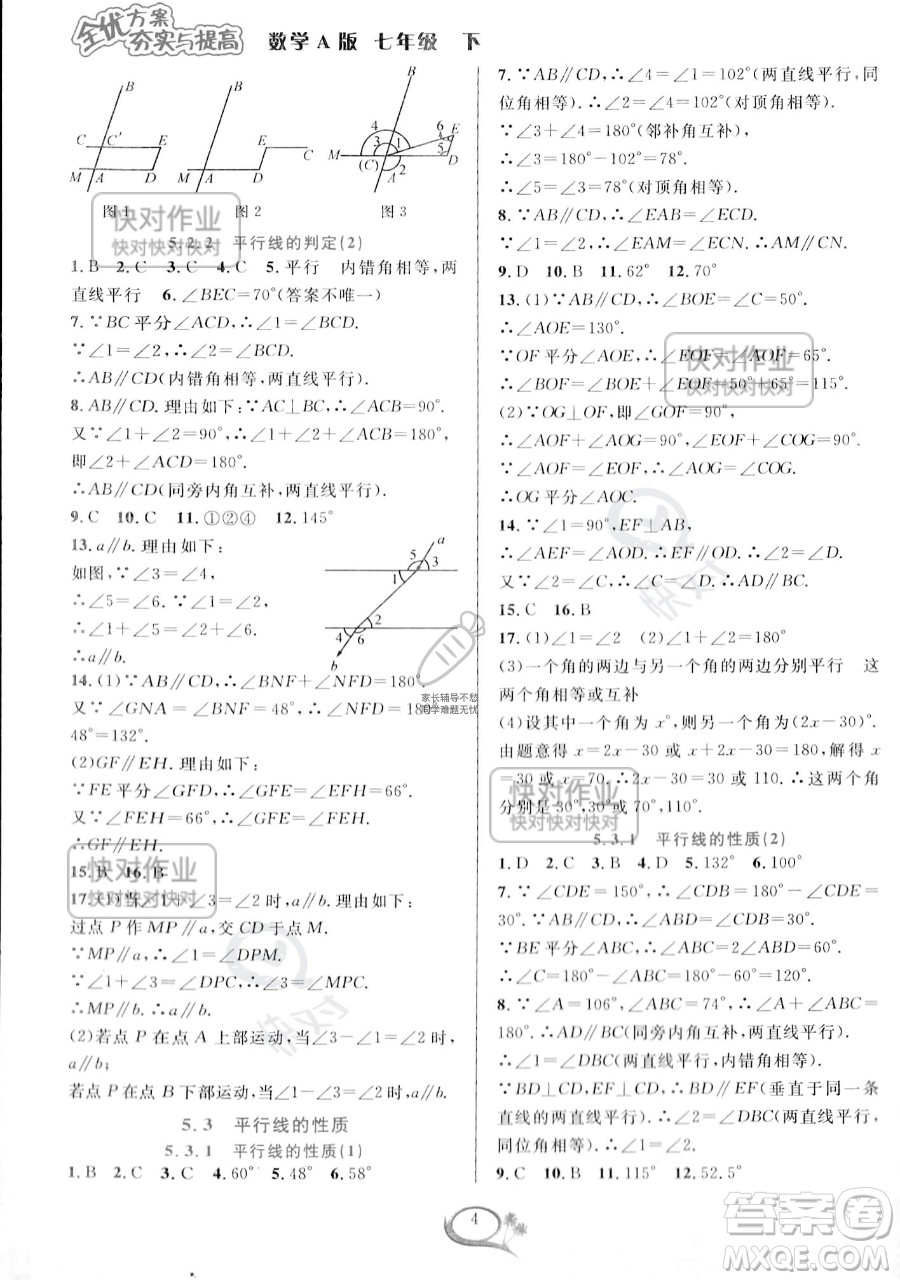 全优方案
夯实与提高
数学A版 七年级 下
B
C C' E
M A D
图1
B
E C
M A D
图2
B
4 6 E
3 1 5
M (C) 2 D
A
图3
5.2.2 平行线的判定(2)
1.B 2.C 3.C 4.C 5.平行 内错角相等,两
直线平行 6.∠BEC=70°(答案不唯一)
7.∵BC平分∠ACD,∴∠1=∠BCD.
∵∠1=∠2,∴∠2=∠BCD.
∴AB∥CD(内错角相等,两直线平行).
8.AB∥CD.理由如下:∵AC⊥BC,∴∠ACB=90°.
又∵∠1+∠2=90°,∴∠1+∠2+∠ACB=180°,
即∠2+∠ACD=180°.
∴AB∥CD(同旁内角互补,两直线平行).
9.C 10.C 11.①②④ 12.145°
13.a∥b.理由如下:
如图,∵∠3=∠4,
∴∠5=∠6.∵∠1=∠2,
∴∠5+∠1=∠2+∠6.
∴a∥b.
a
5 3
1
2
4 6
b
14.(1)∵AB∥CD,∴∠BNF+∠NFD=180°.
又∵∠GNA=∠BNF=48°,∴∠NFD=180°-
48°=132°.
(2)GF∥EH.理由如下:
∵FE平分∠GFD,∴∠GFE=66°.
又∵∠FEH=66°,∴∠GFE=∠FEH.
∴GF∥EH.
15.B 16.B
17.(1)当∠1+∠3=∠2时,a∥b.理由如下:
过点P作MP∥a,交CD于点M.
∵MP∥a,∴∠1=∠DPM.
∵∠1+∠3=∠2,∴∠3=∠MPC.
∴MP∥b.∴a∥b.
(2)若点P在点A上部运动,当∠3-∠1=∠2时,
a∥b;
若点P在点B下部运动,当∠1-∠3=∠2时,a∥b.
5.3 平行线的性质
5.3.1 平行线的性质(1)
1.B 2.C 3.C 4.60° 5.48° 6.58°
7.∵AB∥CD,∴∠4=∠1=102°(两直线平行,同
位角相等).∴∠2=∠4=102°(对顶角相等).
∵∠3+∠4=180°(邻补角互补),
∴∠3=180°-102°=78°.
∴∠5=∠3=78°(对顶角相等).
8.∵AB∥CD,∴∠EAB=∠ECD.
∵∠1=∠2,∴∠EAM=∠ECN.∴AM∥CN.
9.D 10.B 11.62° 12.70°
13.(1)∵AB∥CD,∴∠BOE=∠C=50°.
∴∠AOE=130°.
∵OF平分∠AOE,∴∠EOF=∠AOF=65°.
∴∠BOF=∠BOE+∠EOF=50°+65°=115°.
(2)∵OG⊥OF,即∠GOF=90°,
∴∠AOF+∠AOG=90°,∠EOF+∠COG=90°.
∵∠AOF=∠EOF,∴∠AOG=∠COG.
∴OG平分∠AOC.
14.∵∠1=90°,EF⊥AB,
∴∠AEF=∠AOD.∴EF∥OD.∴∠2=∠D.
又∵∠2=∠C,∴∠C=∠D.∴AD∥BC.
15.C 16.B
17.(1)∠1=∠2 (2)∠1+∠2=180°
(3)一个角的两边与另一个角的两边分别平行 这
两个角相等或互补
(4)设其中一个角为x°,则另一个角为(2x-30)°.
由题意得x=2x-30或x+2x-30=180,解得x
=30或x=70.∴2x-30=30或110.∴这两个角
分别是30°,30°或70°,110°.
5.3.1 平行线的性质(2)
1.D 2.C 3.B 4.D 5.132° 6.100°
7.∵∠CDE=150°,∴∠CDB=180°-∠CDE=
30°.∵AB∥CD,∴∠ABD=∠CDB=30°.
∵BE平分∠ABC,∴∠ABC=2∠ABD=60°.
∴∠C=180°-∠ABC=180°-60°=120°.
8.∵∠A=106°,∠ABC=74°,∴∠A+∠ABC=
180°.∴AD∥BC(同旁内角互补,两直线平行).
∴∠1=∠DBC(两直线平行,内错角相等).
∵BD⊥CD,EF⊥CD,∴BD∥EF(垂直于同一条
直线的两直线平行).∴∠2=∠DBC(两直线平行,
同位角相等).∴∠1=∠2.
9.C 10.B 11.115° 12.52.5°
4
快对作业
快对快对快对
快对作业
快对快对快对
快对作业
快对快对快对
快对作业
快对快对快对
快对
快对
家长辅导不愁
同学难题无忧
答案圈
MXQE.COM